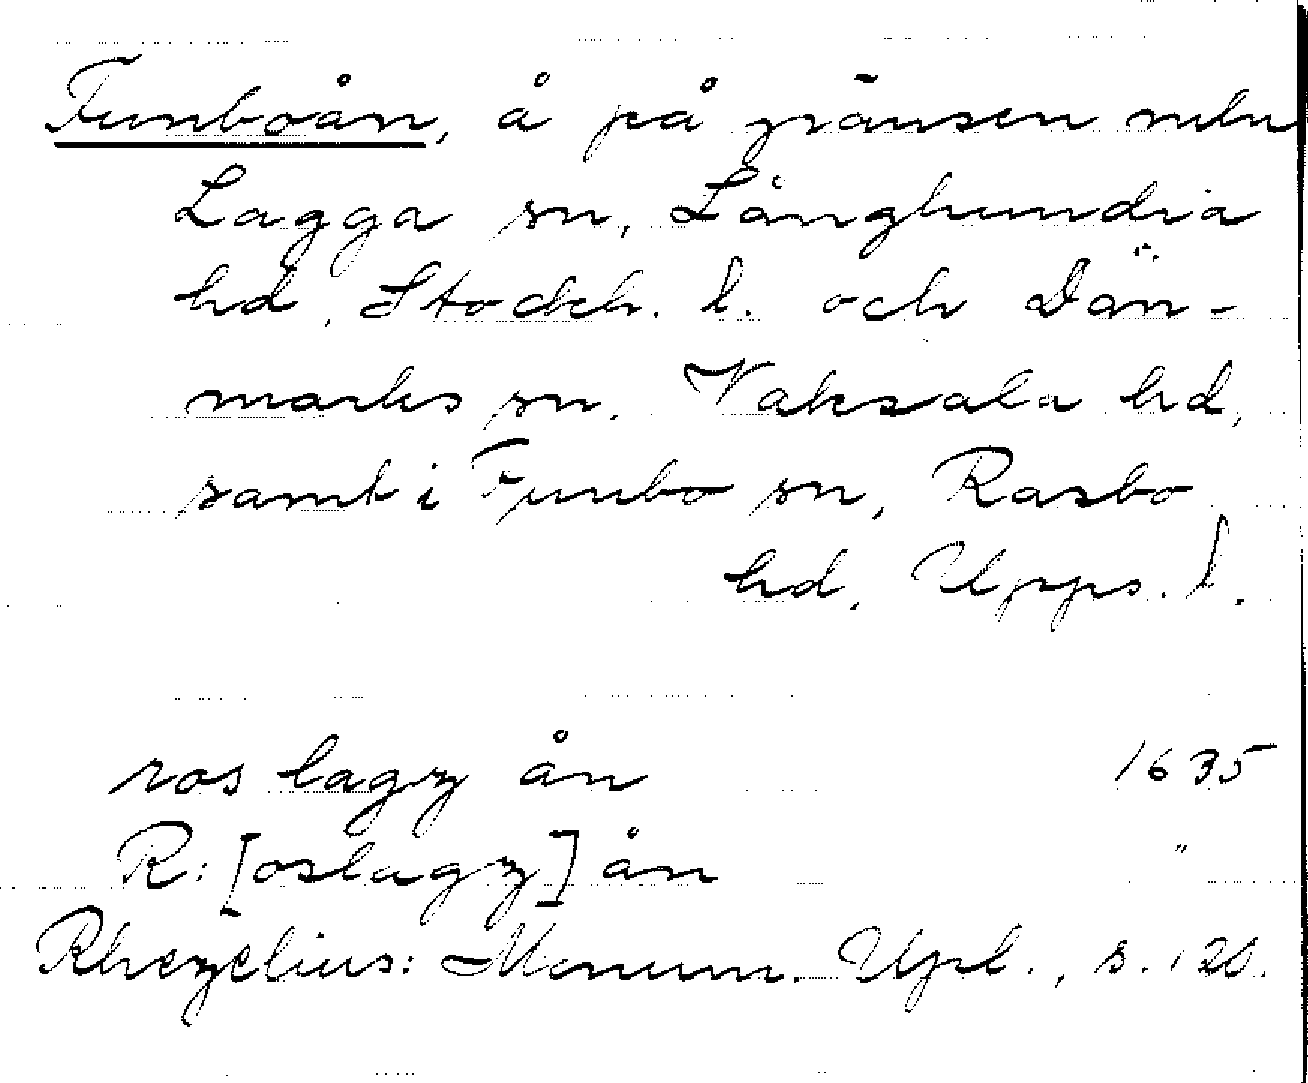 Funboån, å på gränsen mln
Lagga sn, Långhundra
hd, Stockh. l. och Dan-
marks sn. Vaksala hd,
samt i Funbo sn, Rasbo
hd, Upps. l.
ros lagz ån 1635
R:[oslagz] ån "
Rhezelius: Monum. Upl., s.